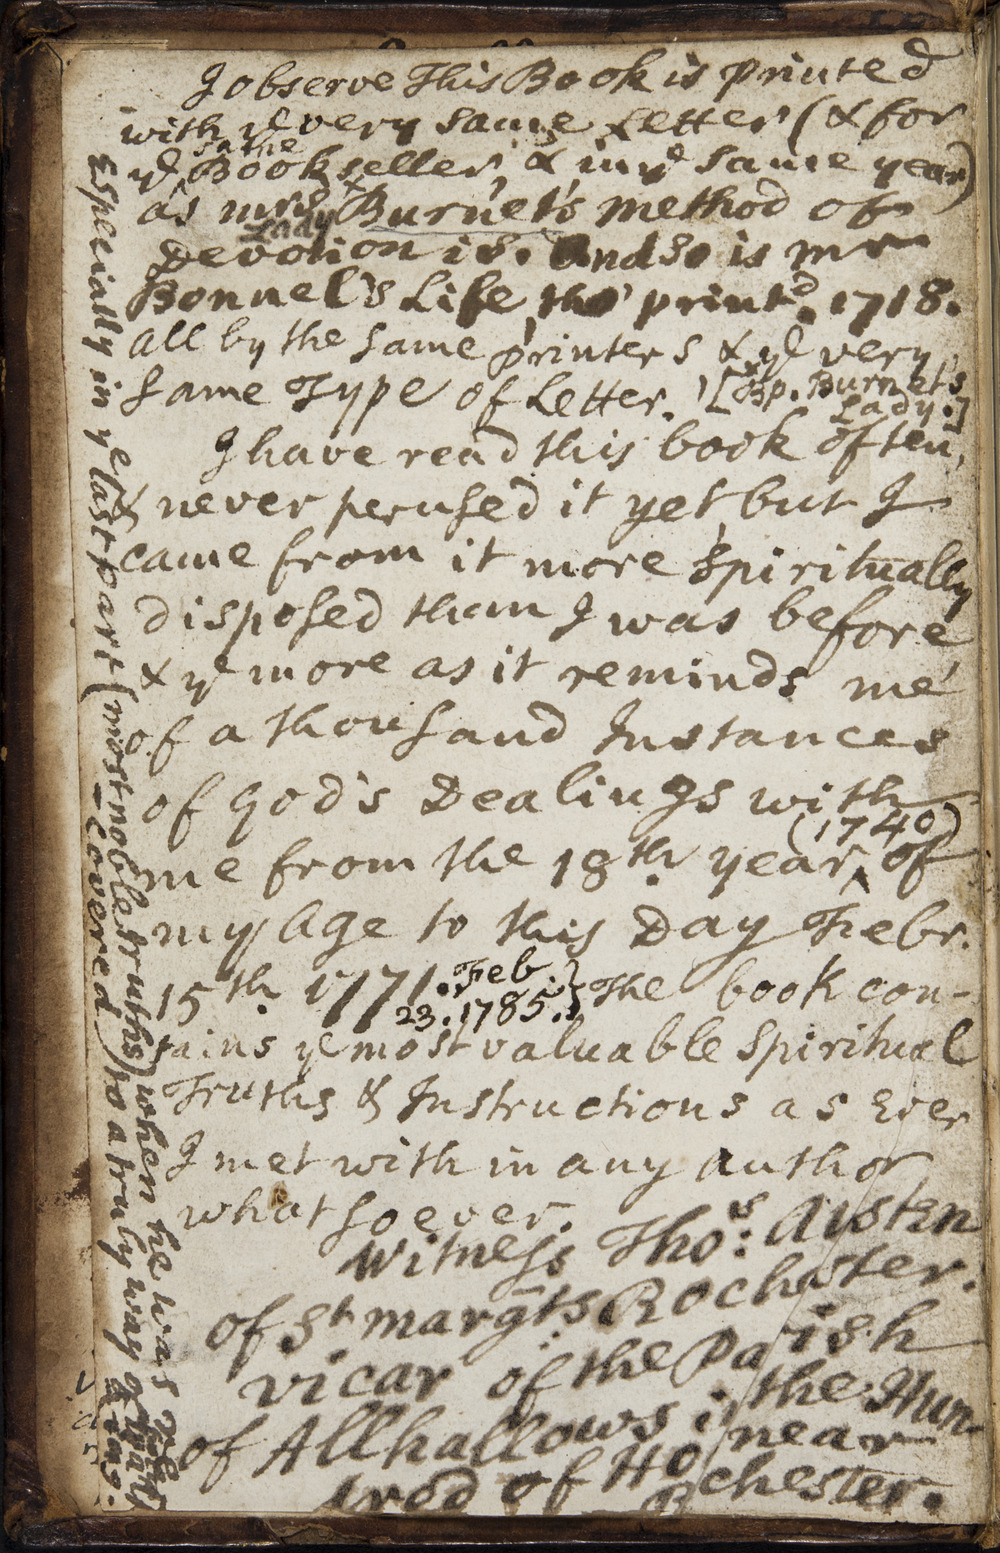 I observe This Book is printed
with yᵉ very same Letter (& for
yᵉ same Bookseller, & in yᵉ same year)
as mrs Burnet's method of
Lady
Devotion is. And so is mr
Bonnel's Life, tho' printd. 1718.
all by the same printers & yᵉ very
same Type of Letter. [Bp. Burnet's
Lady.]
I have read this book often,
& never perused it yet, but I
came from it more spiritually
disposed than I was before
& yᵉ more as it reminds me
of a thousand Instances
of God's Dealings with
me from the 18th year (1740) of
my Age to this Day Febr.
15th 1771. Feb. 23. 1785.} The book con-
tains yᵉ most valuable Spiritual
Truths & Instructions as Ever
I met with in any author
whatsoever.
Witness Thos: Austen
of St margts Rochester.
vicar of the Parish
of Allhallows in the Hun-
dred of Ho near
Rochester.
Especially in yᵉ last part (most noble truths) when he was
covered) to a truly way of